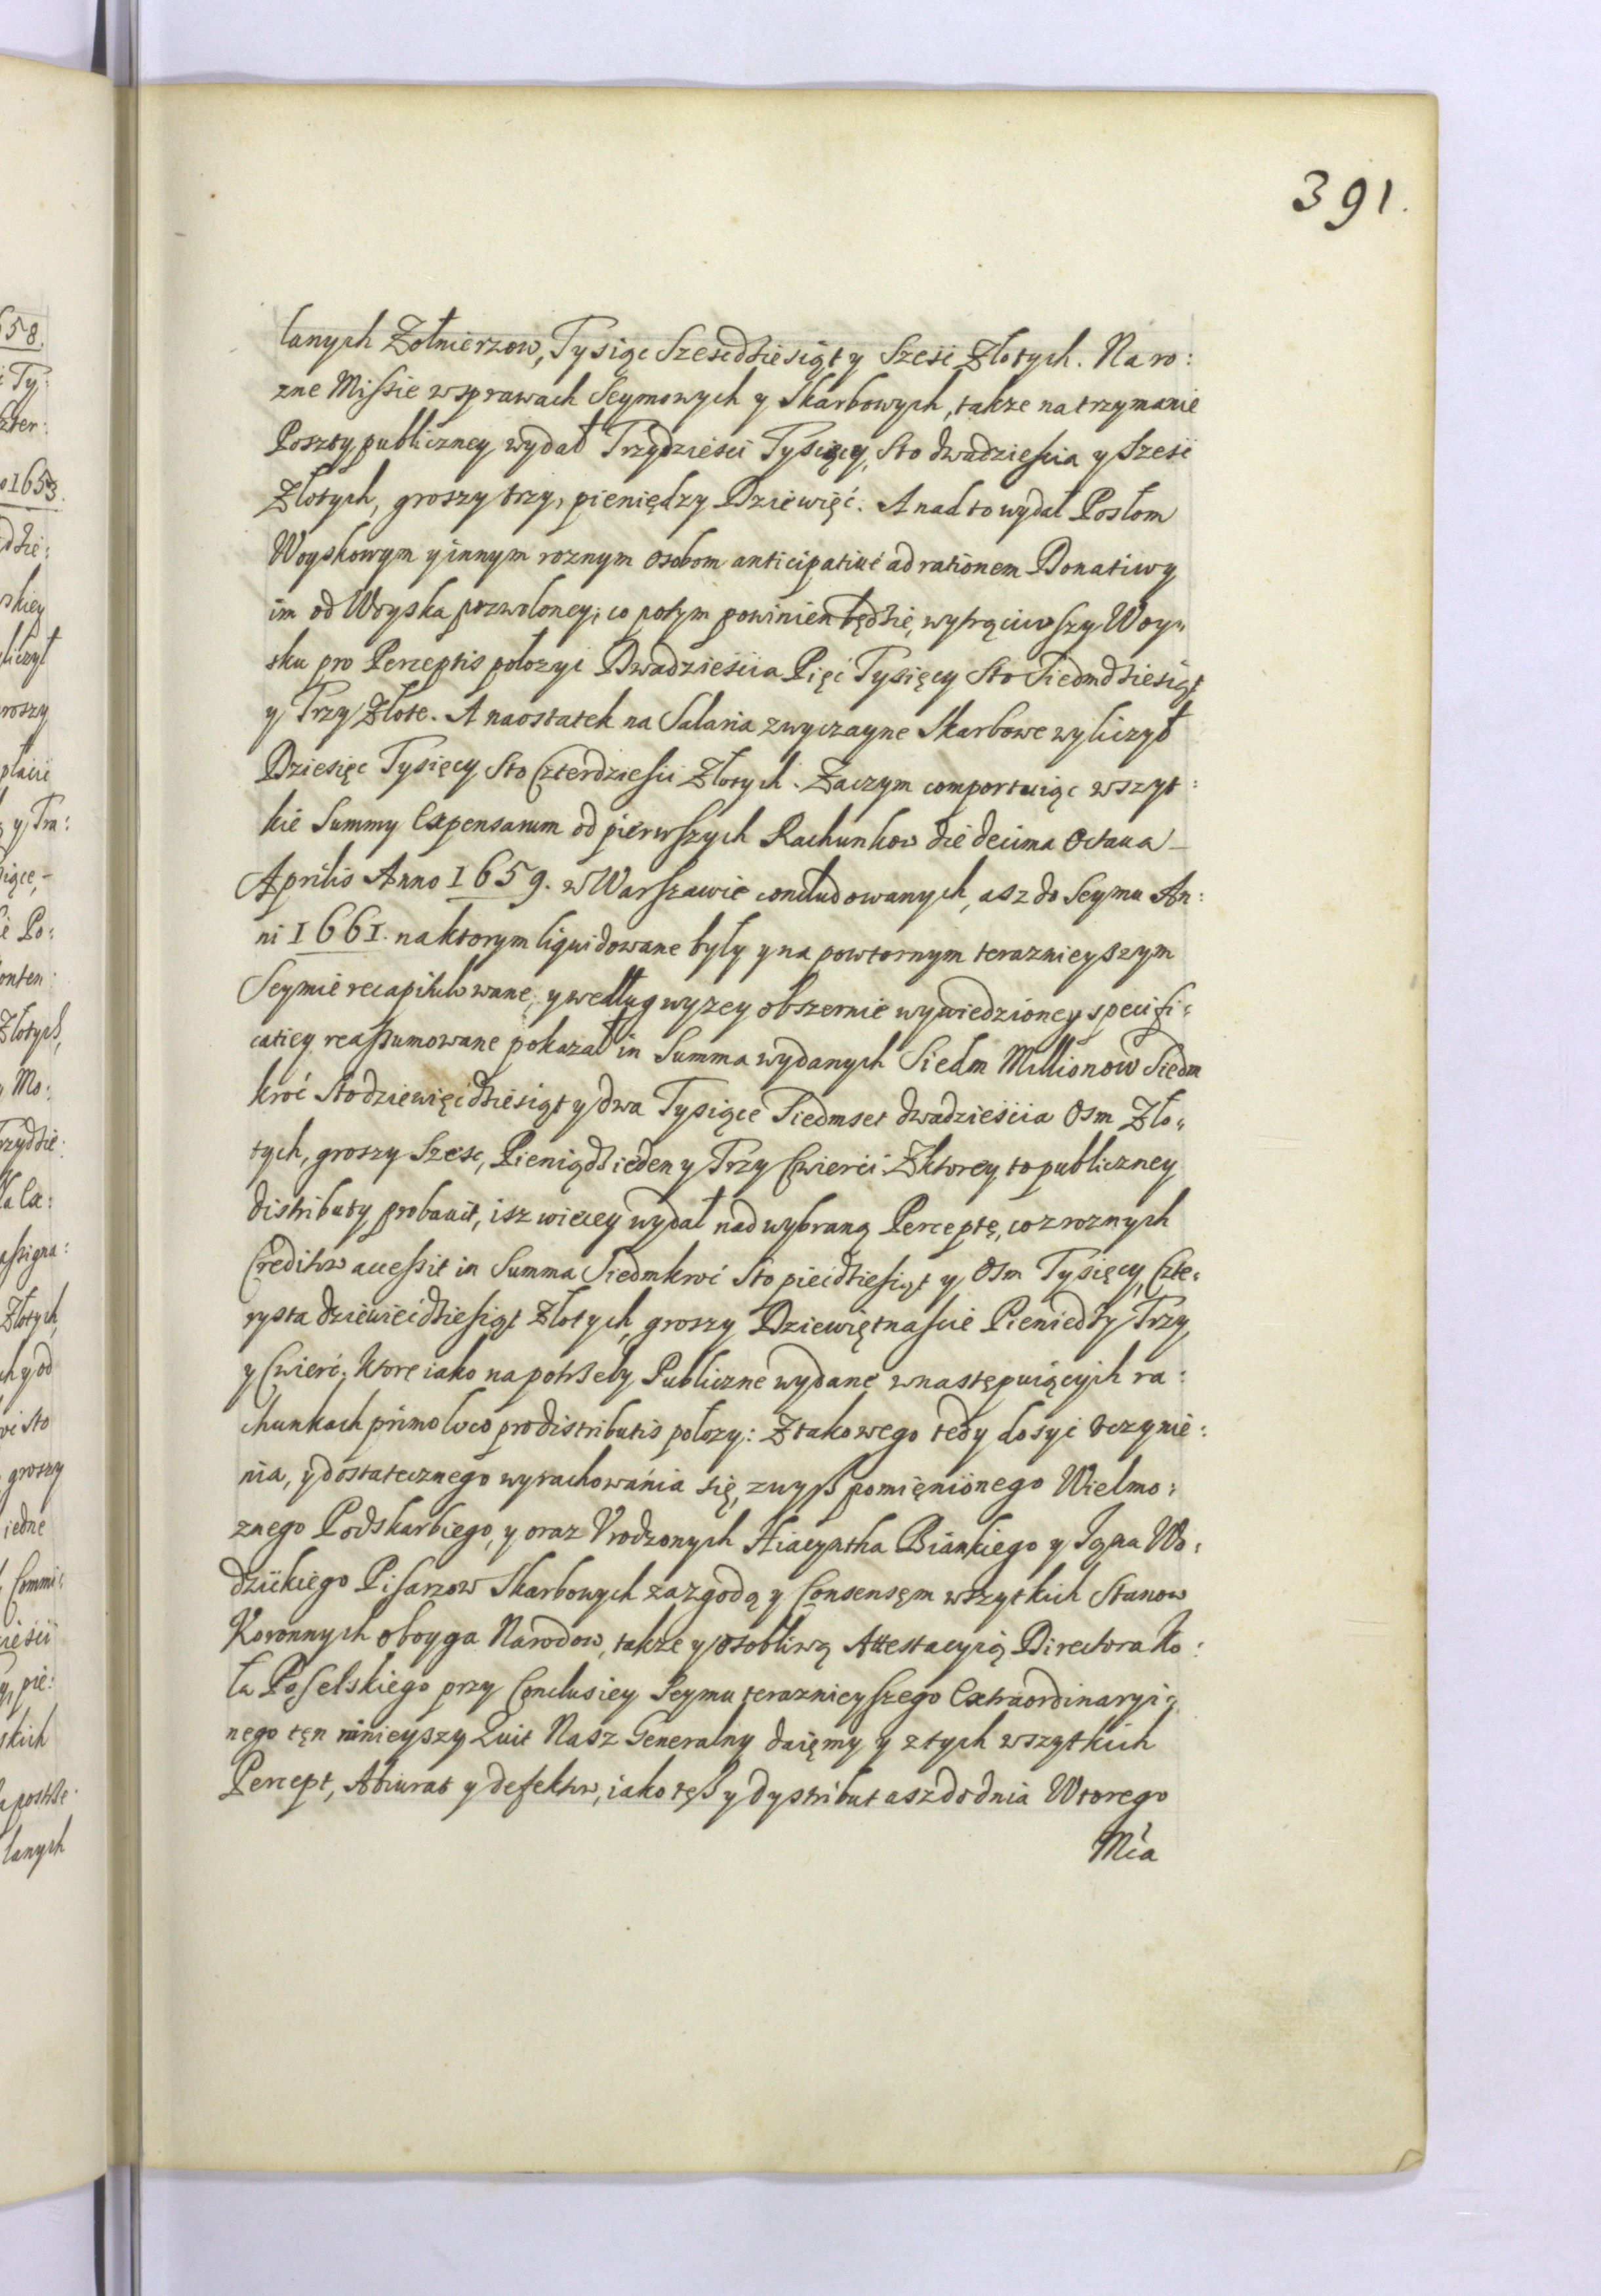 391.
lanych Zołnierzow, Tysiąc Szescdziesiąt y Sześć Złotych. Na ro:
zne Missie w sprawach Seymowych y Skarbowych, także na trzymanie
Poszty publiczney wydał Trzydzieści Tysięcy, Sto dwadzieścia y Sześć
Złotych, groszy trzy, pieniędzy Dziewięć. A nad to wydał Posłom
Woyskowym y innym roznym osobom anticipativé ad rationem Donatiwy
im od Woyska pozwoloney, co potym powinien będzie, wytrąciwszy Woy:
sku pro Perceptis położyć Dwadzieścia Pięć Tysięcy Sto Siedmdziesiąt
y Trzy Złote. A naostatek na Salaria zwyczayne Skarbowe wyliczył
Dziesięc Tysięcy Sto Czterdzieści Złotych. Zaczym comportuiąc wszyt:
kie Summy Expensarum od pierwszych Rachunkow die decima Octaua
Aprilis Anno 1659. w Warszawie concludowanych, asz do Seymu An:
ni 1661. na ktorym liquidowane były y na powtornym teraznieyszym
Seymie recapitulowane, y według wyzey obszernie wywiedzioney specifi:
catiey reassumowane pokazał in Summa wydanych Siedm Millionow Siedm
kroć Sto dziewięćdziesiąt y dwa Tysiące Siedmset dwadzieścia Osm Zło:
tych, groszy Szesc, Pieniądz ieden y Trzy Cwierci. Z ktorey to publiczney
distributy probauit, isz wiecey wydał nad wybraną Perceptę, co z roznych
Creditow accessit in Summa Siedmkroć Sto piećdziesiąt y Osm Tysięcy, Czte:
rysta dziewiećdziesiąt Złotych, groszy Dziewiętnaście Pieniedzy Trzy
y Cwierć, ktore iako na potrzeby Publiczne wydane w następuiących ra:
chunkach primo loco pro distributis położy: Z takowego tedy dosyć vczynie:
nia, y dostatecznego wyrachowania się, z wysz pomięnionego Wielmo:
znego Podskarbiego, y oraz Vrodzonych Hiacyntha Biankiego y Jana Wo:
dzickiego Pisarzow Skarbowych za zgodą y Consensęm wszytkich Stanow
Koronnych oboyga Narodow, także y osobliwą Attestacyią Directora Ko:
ła Poselskiego przy Conclusiey Seymu teraznieyszego Extraordinaryi:
nego tęn ninieyszy Quit Nasz Generalny daięmy y z tych wszytkich
Percept, Abiurat y defektow, iako tesz y dystribut asz do dnia Wtorego
Mca